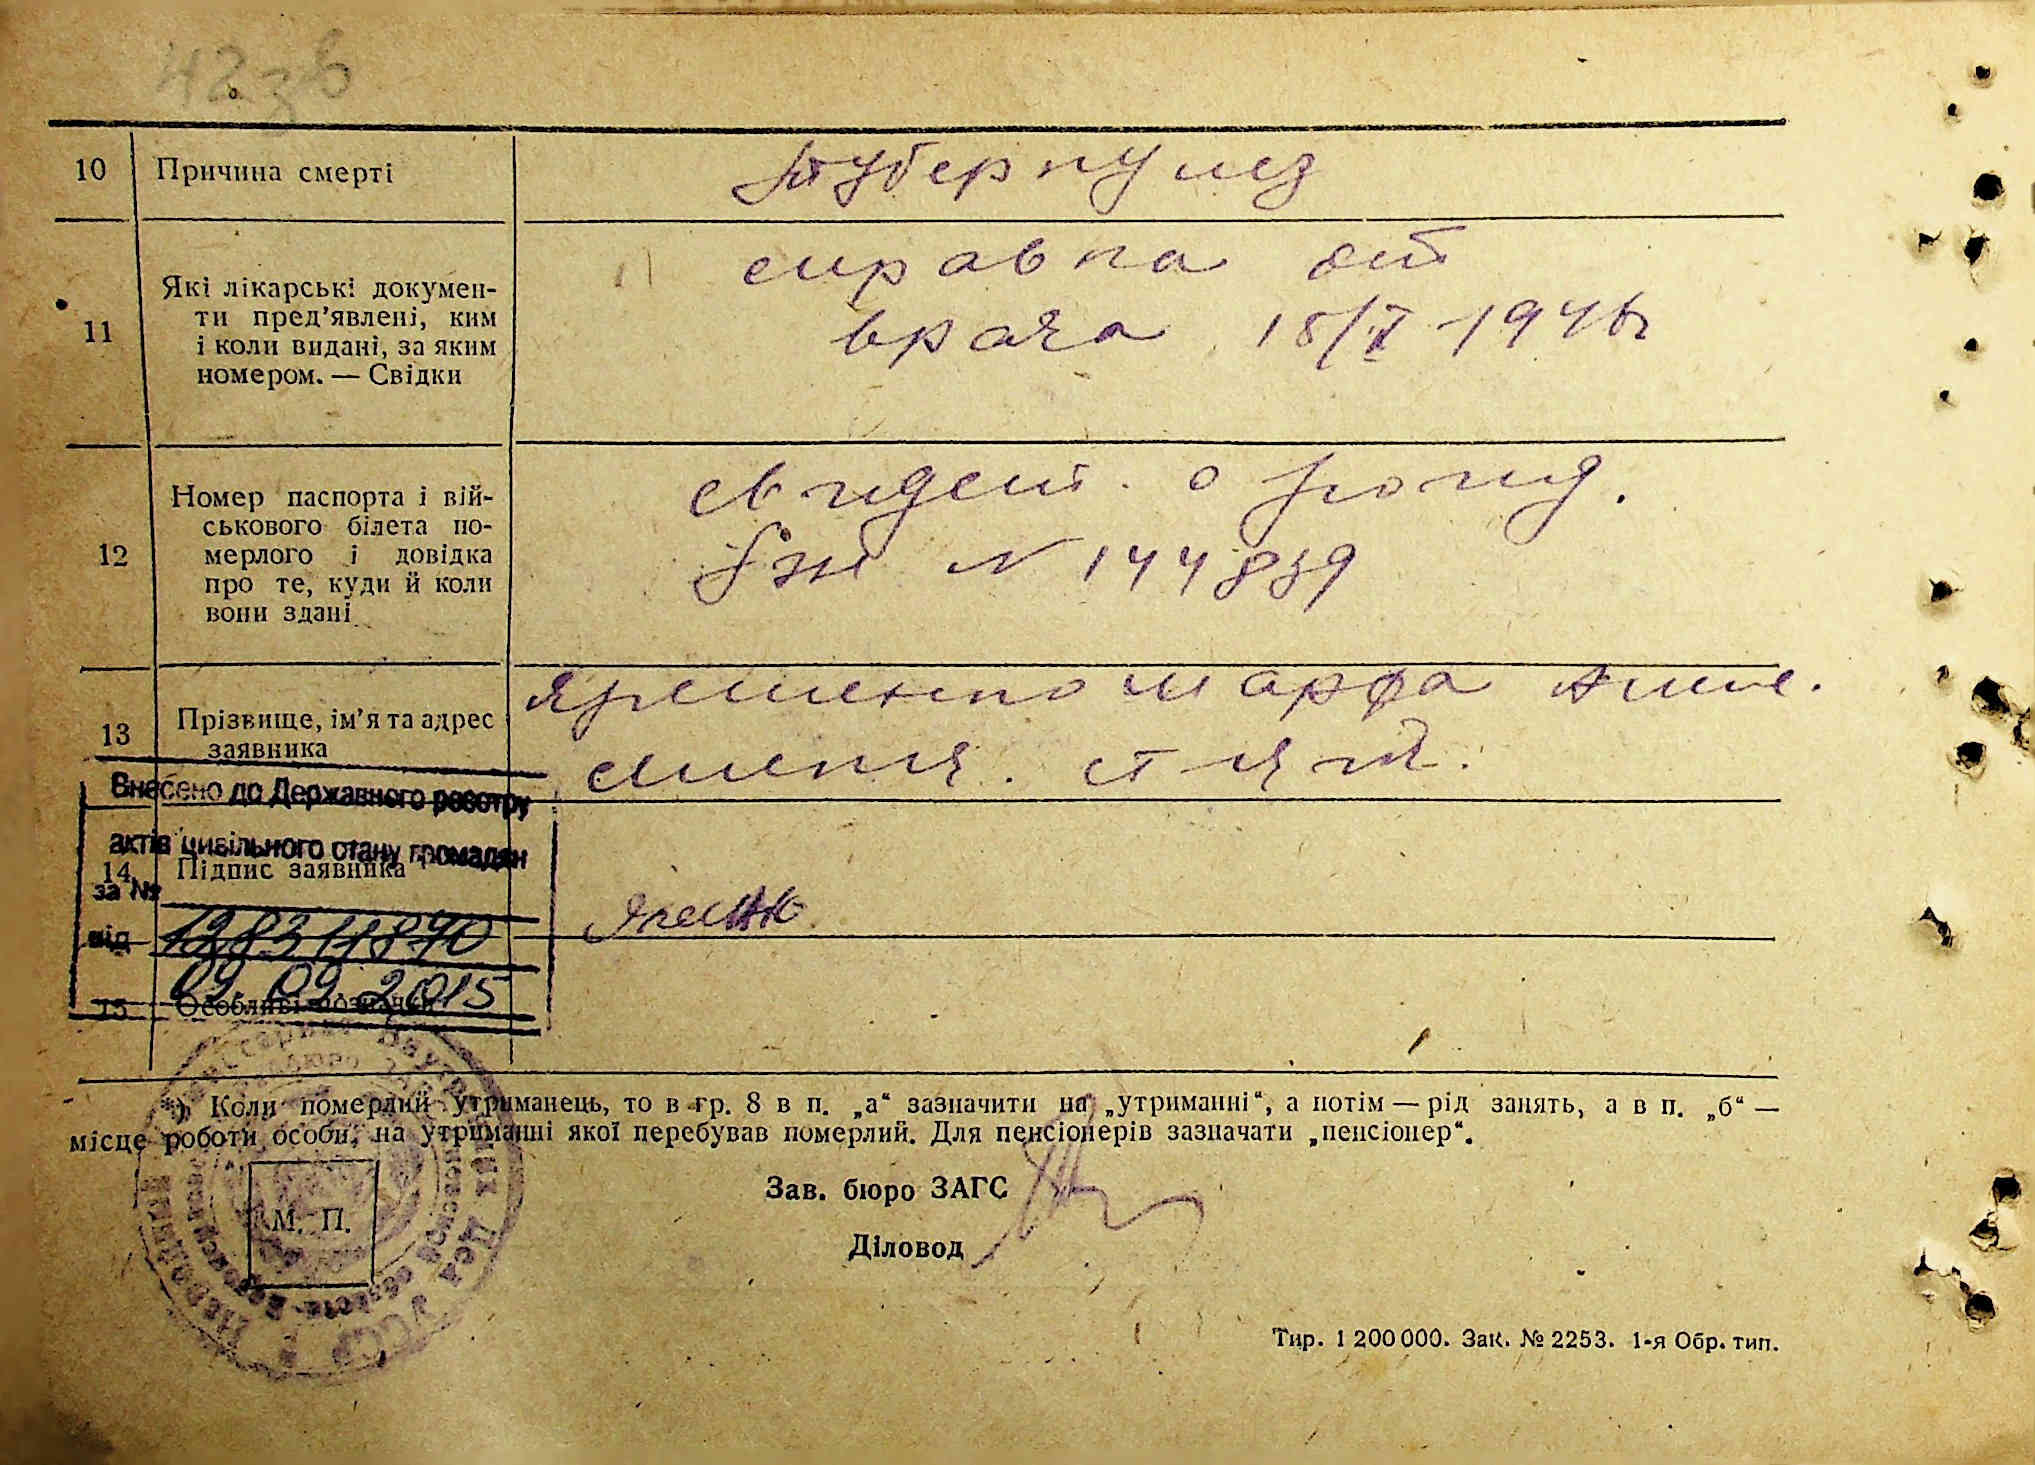 10 Причина смерті
Туберкулез
11 Які лікарські документи пред'явлені, ким
і коли видані, за яким
номером. — Свідки
справка от
врача 18/V 1946
12 Номер паспорта і вій-
ськового білета по-
мерлого і довідка
про те, куди й коли
вони здані
свидет. о рожд.
N 144839
13 Прізвище, ім'я та адрес
заявника
Марфа
Внесено до Державного реєстру
актів цивільного стану громадян
14 Підпис заявника
за №
від 128311840
09.09.2015
15 Особливі позначки
*) Коли померлий утриманець, то в гр. 8 в п. „а“ зазначити на „утриманні“, а потім — рід занять, а в п. „б“ —
місце роботи особи, на утриманні якої перебував померлий. Для пенсіонерів зазначати „пенсіонер“.
Зав. бюро ЗАГС
М. П.
Діловод
Тир. 1 200 000. Зак. № 2253. 1-я Обр. тип.